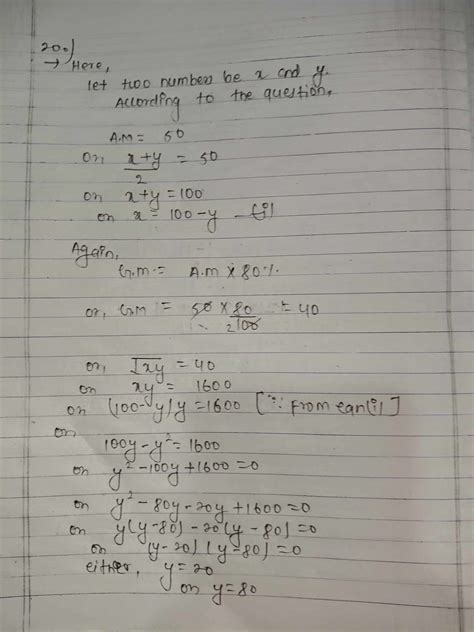 200)
→ Here,
let two numbers be x and y.
According to the question,
A.M = 50
or, x+y/2 = 50
or x+y = 100
or x = 100-y —(i)
Again,
G.M = A.M × 80%
or, G.M = 50 × 80/2100 = 40
or, √xy = 40
or xy = 1600
or (100-y)y = 1600 [∵ from eqn(i)]
or
100y-y² = 1600
or y²-100y+1600=0
or y²-80y-20y+1600=0
or y(y-80)-20(y-80)=0
or (y-20)(y-80)=0
either, y=20
or y=80